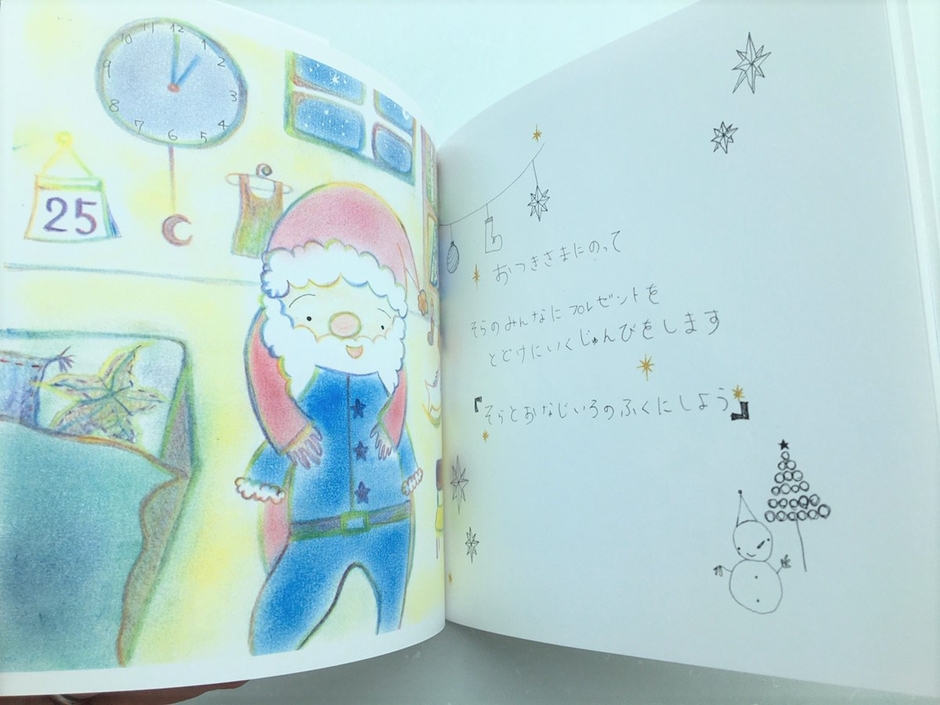 11 12 1
2
3
4
5
6
7
8
25
おつきさまにのって
そらのみんなにプレゼントを
とどけにいくじゅんびをします
『そらとおなじいろのふくにしよう』